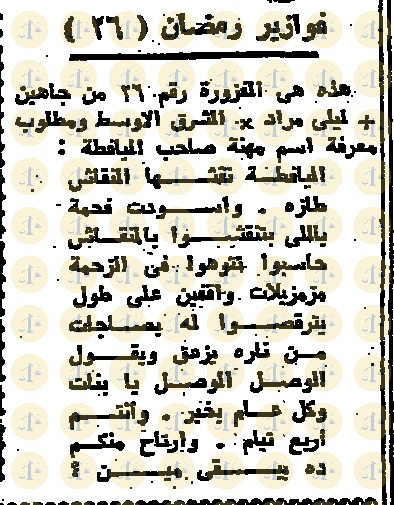 فوازير رمضان ( ٢٦ )
هذه هى الفزورة رقم ٢٦ من جاهين
+ ليلى مراد × الشرق الاوسط ومطلوب
معرفة اسم مهنة صاحب اليافطة :
اليافطة نقشها النقاش
طازه . واسودت فحمة
ياللى بتنقشوا بالمنقاش
حاسبوا تتوهوا فى الزحمة
مزمزيلات واقفين على طول
بترقصوا له بصاجات
من ناره يزعق ويقول
الوصل الوصل يا بنات
وكل عام بخير . وانتم
أربع تيام . وارتاح منكم
ده يبقى مين ؟